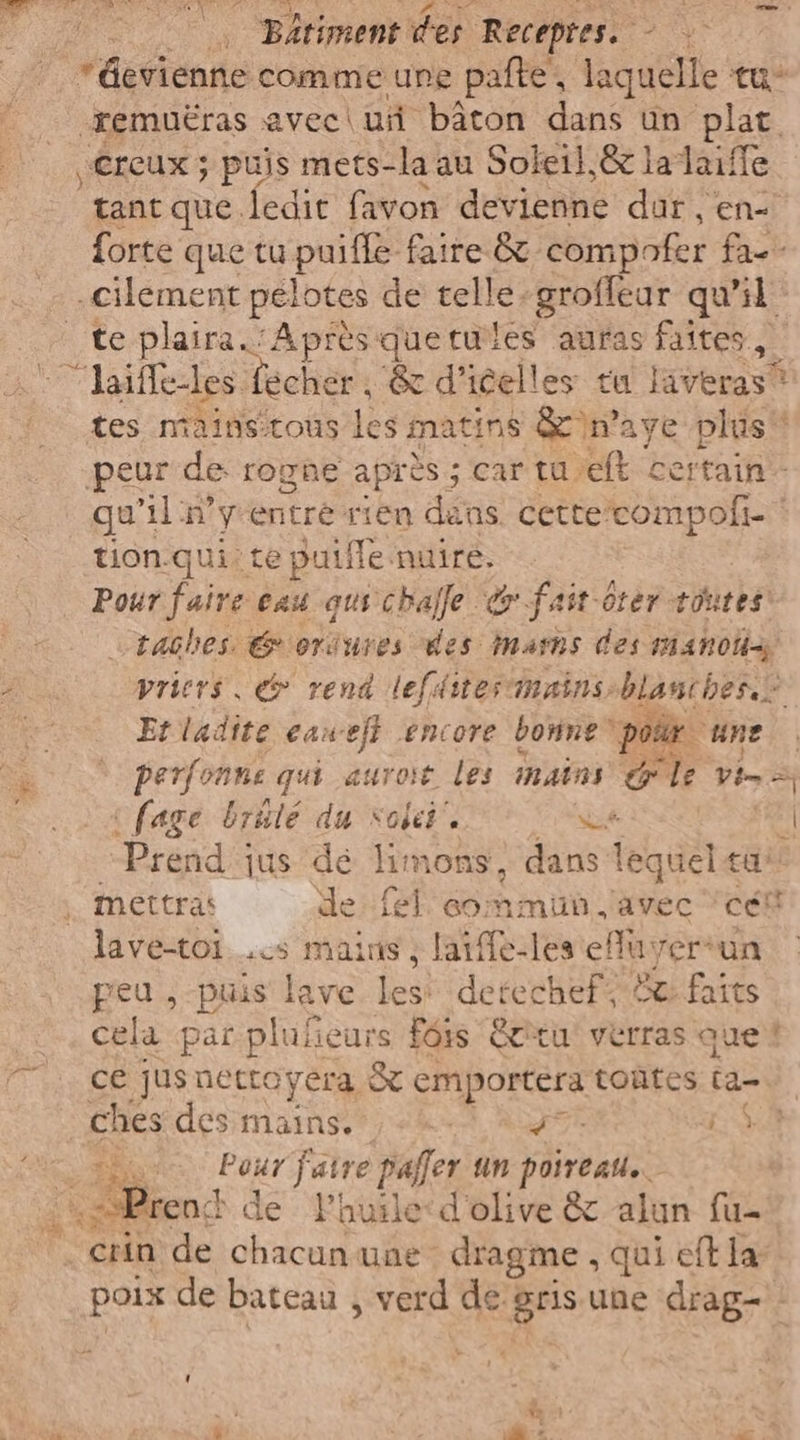 Bâtiment des Receptes.
devienne comme une paſte, laquelle tu
remuëras avec un bâton dans un plat
creux ; puis mets-la au Soleil, & la laiſſe
tant que ledit ſavon devienne dur, en-
ſorte que tu puiſſe faire & compoſer fa-
cilement pelotes de telle groſſeur qu'il
te plaira. Après que tu les auras faites,
laiſſe-les ſecher, & d'icelles tu laveras
tes mains tous les matins & n'aye plus
peur de rogne après ; car tu eſt certain
qu'il n'y entre rien dans cette compoſi-
tion qui te puiſſe nuire.
Pour faire eau qui chaſſe & fait ôter toutes
taches & ordures des mains des manou-
vriers, & rend leſdites mains blanches.
Et ladite eau eſt encore bonne pour une
perſonne qui auroit les mains & le vi-
ſage brûlé du soleil.
Prend jus de limons, dans lequel tu
mettras de ſel commun, avec cét
lave-toi mains, laiſſe-les eſſuyer un
peu, puis lave les derechef, & faits
cela par pluſieurs fois & tu verras que
ce jus nettoyera & emportera toutes ta-
ches des mains.
Pour faire paſſer un poireau.
Prend de l'huile d'olive & alun ſu-
crin de chacun une dragme, qui eſt la
poix de bateau, verd de gris une drag-